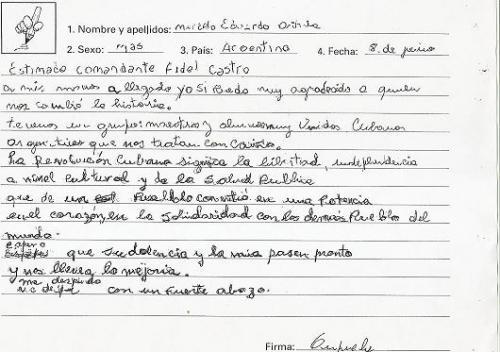 1. Nombre y apellidos: Eduardo
2. Sexo: mas 3. País: Argentina 4. Fecha: 8. de junio
Estimado comandante Fidel Castro
a mis manos a llegado yo si Redo muy agradecido a quien
nos cambió la historia.
tenemos un grupo: maestros y alumnos muy Unidos Cubanos
argentinos que nos tratan con Cariño.
ha Revolución Cubana significa la libertad, independencia
a nivel Cultural y de la Salud Publica
que de un Pueblo lo convirtió en una Potencia
en el corazón, en la Solidaridad con los demás Pueblos del
mundo.
espero que su dolencia y la mia pasen pronto
y nos llegue la mejoria.
me despido
con un fuerte abrazo.
Firma: